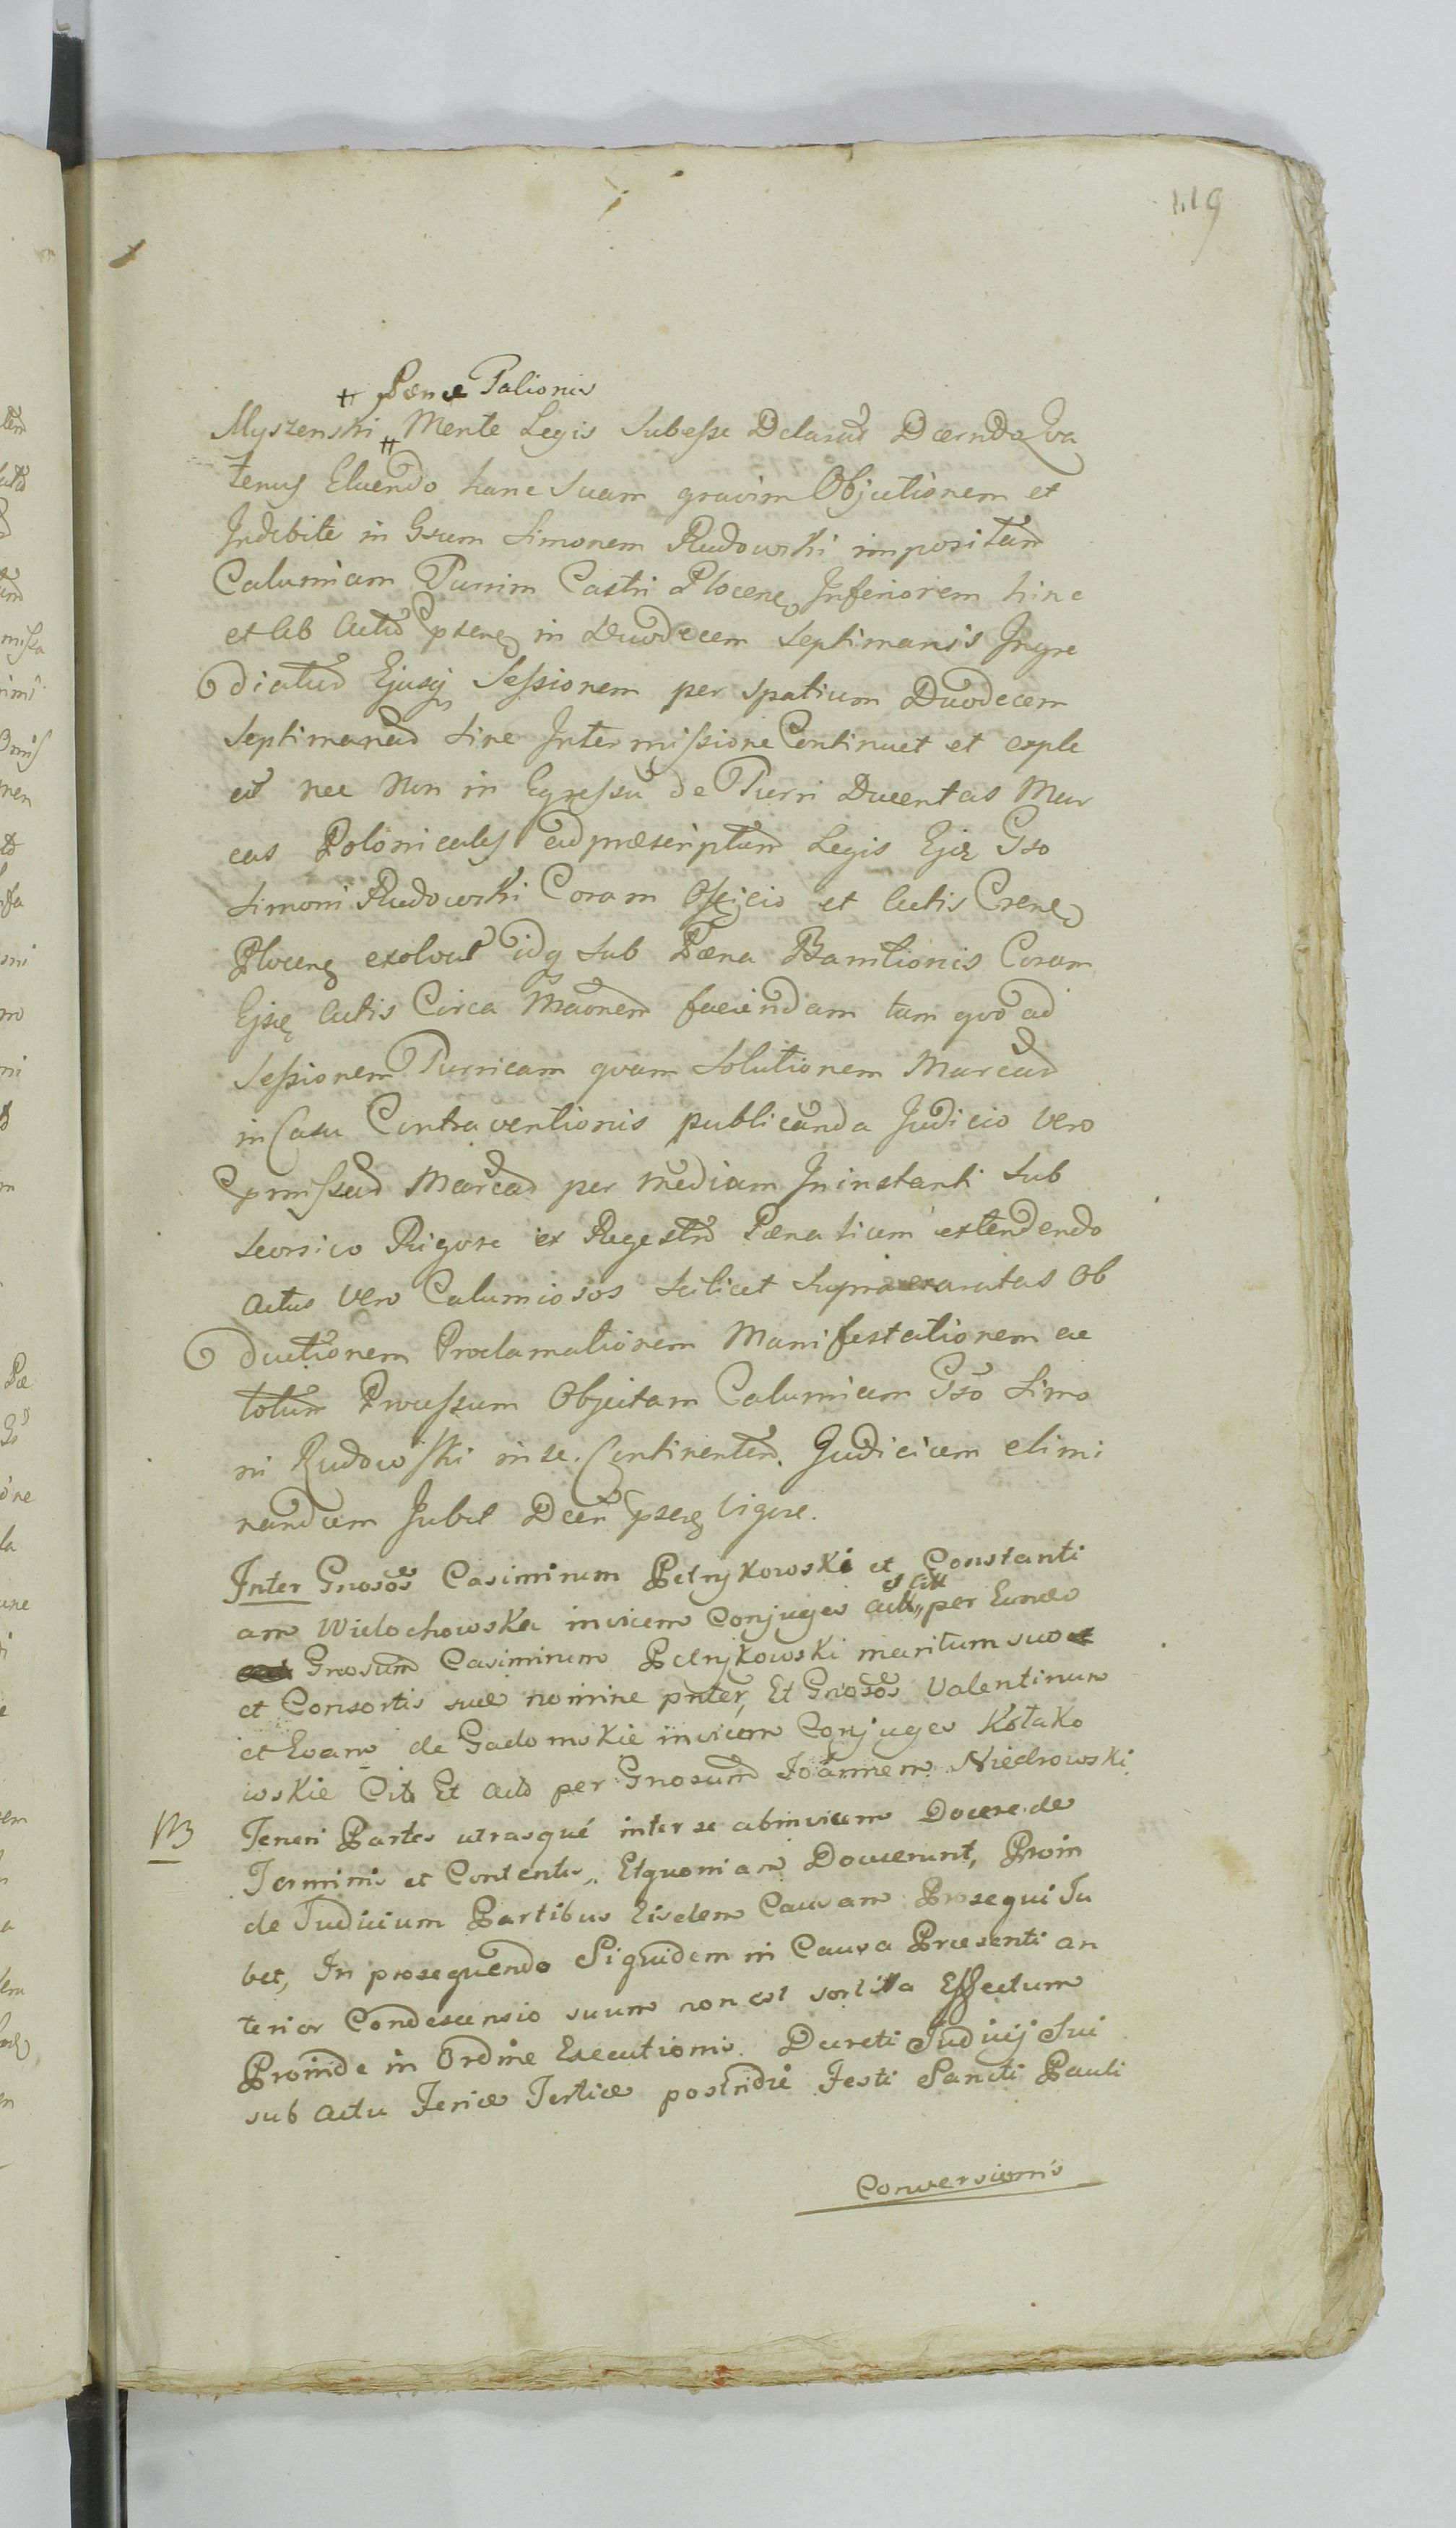 119
# Pænæ Talionis
Myszenski # Mente Legis Subesse Delarat Decrndo Qva
tenus Eluendo hanc Suam gravim Objectionem et
Indebite in Gsum Simonem Rudowski impositam
Calumniam Turrim Castri Plocen Inferiorem hinc
et ab Actu psen in Duodecem Septimanis Ingre
diatur Ejusq Sessionem per Spatium Duodecem
Septimanar Sine Intermissione Continuet et exple
at nec Non in Egressu de Turri Ducentas Mar
cas Polonicales ad præscriptum Legis Ejde Gso
Simoni Rudowski Coram Officio et Actis Crens
Plocens exolvat idq Sub Pæna Bannitionis Coram
Ejsde Actis Circa Maonem faciendam tam qvo ad
Sessionem Turricam qvam Solutionem Marcar
in Casu Contraventionis publicanda Judicio vero
pmissar Marcar per mediam In instanti Sub
Seorsivo Rigore ex Regestro Pænalium extendendo
Actus vero Calumniosos Scilicet Supra exaratas Ob
ductionem Proclamationem Manifestationem ac
totum Processum Objectam Calumniam Gso Simo
ni Rudowski in se Continentem Judicium elimi
nandum Jubet Decr psens Vigore.
Inter Gnosos Casimirum Petrykowski et Constanti
am Wielochowska invicem Conjuges act et citt per Eundem
Gnosum Casimirum Petrykowski maritum suo
et Consortis suæ nomine pnter, Et Gnosos Valentinum
et Evam de Gadomskie invicem Conjuges Kołako
wskie Cit Et act per Gnosum Joannem Niedrowski
NB Teneri Partes utrasqué inter se abinvicem Docere de
Terminis et Contentis, Et quoniam Docuerunt, Proin
de Judicium Partibus Eisdem Causam Prosequi Ju
bet, In prosequendo Siquidem in Causa Præsenti an
terior Condescensio suum non est sortita Effectum
Proinde in Ordine Executionis Decreti Judicij Sui
sub actu Feriæ Tertiæ postridie Festi Sancti Pauli
Conversionis